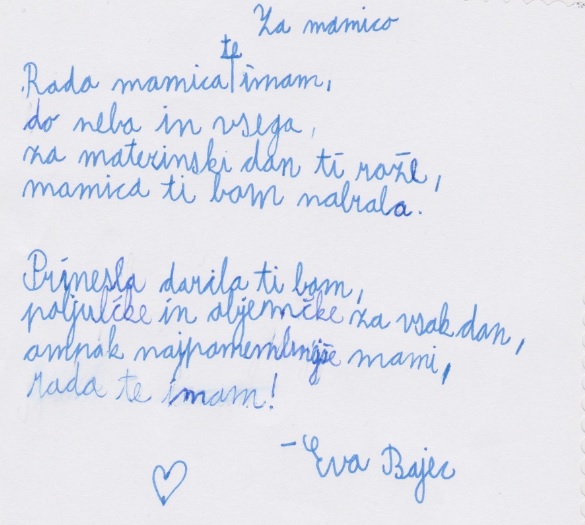 Za mamico
te
Rada mamica imam,
do neba in vsega,
za materinski dan ti rože,
mamica ti bom nabrala.
Prinesla darila ti bom,
poljubčke in objemčke za vsak dan,
ampak najpomembnejše mami,
rada te imam!
- Eva Bajec